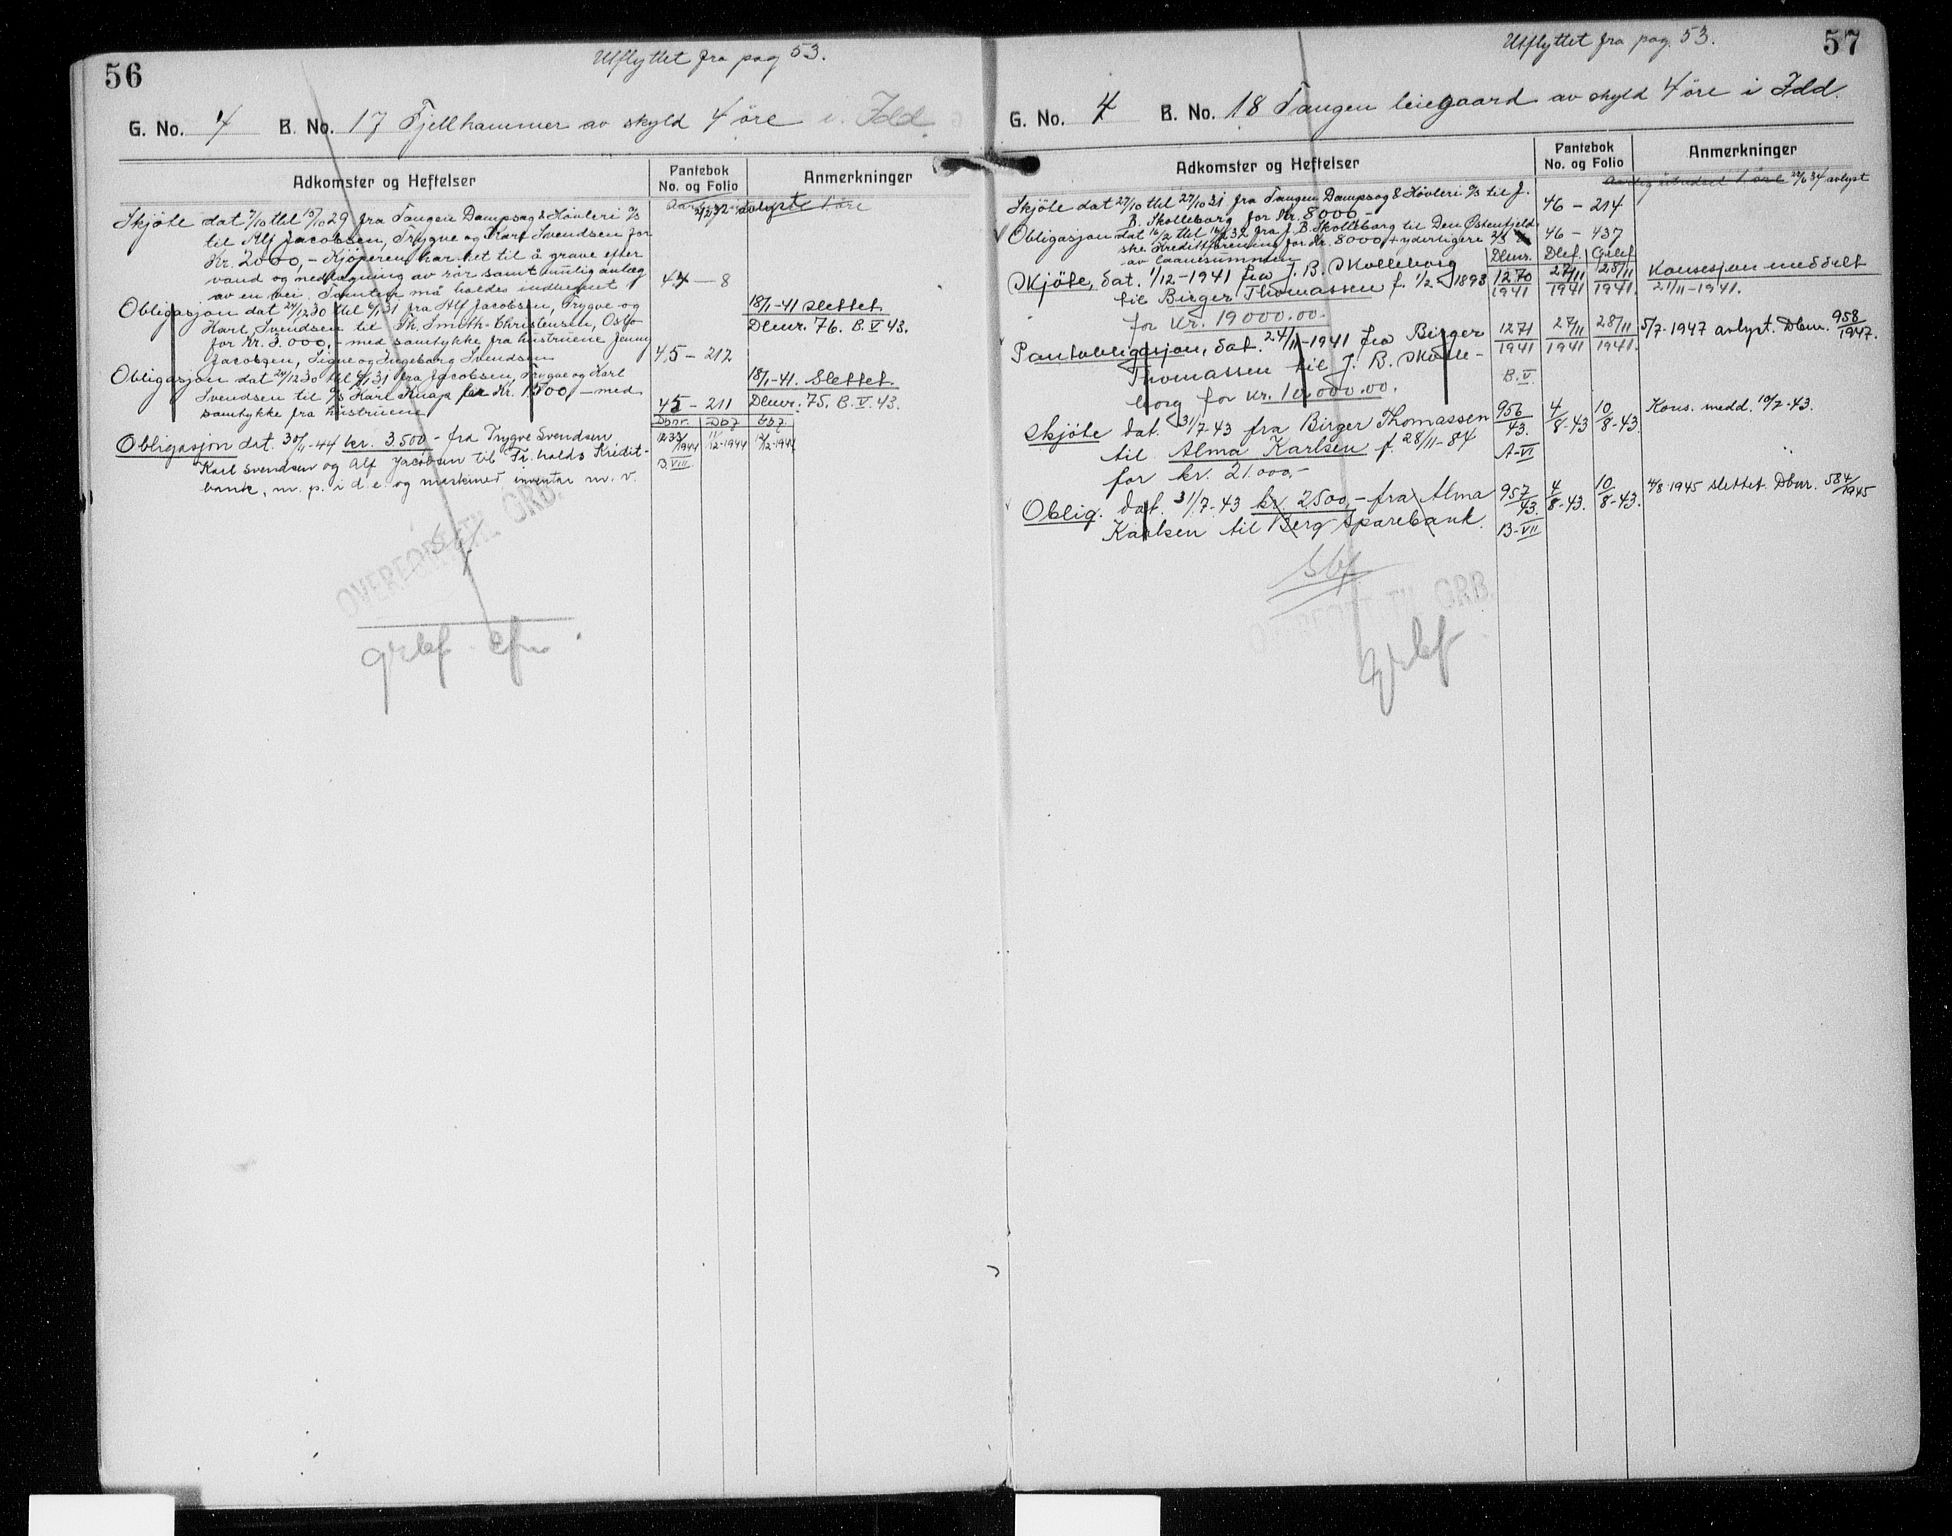 56
Utflyttet fra pag 53.
G. No. 4 B. No. 17 Fjellhammer av skyld 4 øre i Idd.
Adkomster og Heftelser
Pantebok
No. og Folio
Anmerkninger
avlyst 1 øre
Skjøte dat 7/10 tbl 19/10 29 fra Tangen Dampsag & Høvleri A/S
til Alf Jacobsen, Trygve og Karl Svendsen for
Kr. 2000,- Kjøperen har ret til å grave efter
vand og nedlægning av rør samt mulig anlæg
av en vei. Tomten må holdes indhegnet
44 - 8
Obligasjon dat 24/12 30 tbl 6/1 31 fra Alf Jacobsen, Trygve og
Karl Svendsen til Th. Smith-Christensen, Oslo
for Kr. 3.000,- med samtykke fra hustruene Jenny
Jacobsen, Signe og Ingeborg Svendsen
45 - 212
18/1-41 slettet
Dbnr. 76. B. V. 43.
Obligasjon dat 24/12 30 tbl 6/1 31 fra Jacobsen, Trygve og Karl
Svendsen til A/S Karl Knap for Kr. 1500,- med
samtykke fra hustruene
45 - 211
18/1-41. Slettet.
Dbnr. 75. B. V. 43.
Dbnr. Dbf
Obligasjon dat. 30/11-44 kr. 3.500- fra Trygve Svendsen
Karl Svendsen og Alf Jacobsen til Fr.halds Kredit-
bank, m. p. i d. e. og maskiner inventar m. v.
1233/1944 11/12-1944 12/12-1944
B VIII
OVERFØRT TIL ORB.
grbf.
57
Utflyttet fra pag. 53.
G. No. 4 B. No. 18 Tangen leiegaard av skyld 4 øre i Idd.
Adkomster og Heftelser
Pantebok
No. og Folio
Anmerkninger
1 øre 22/6 34 avlyst
Skjøte dat 27/10 tbl 27/10 31 fra Tangen Dampsag & Høvleri A/S til J.
B. Skolleborg for Kr. 8000-
46 - 214
Obligasjon dat 16/2 tbl 16/2 32 fra J. B. Skolleborg til Den Østenfjeld-
ske Kreditforening for Kr. 8000,- + yderligere 2/3
av Laanesummen
46 - 437
Dbnr. Dbf. Grbf
Skjøte, dat. 1/12-1941 fra J. B. Skolleborg
til Birger Thomassen f. 1/2 1893
for kr. 19000.00.-
1270/1941 27/11 1941 28/11 1941.
Konsesjon meddelt
21/11-1941.
Pantobligasjon, dat. 24/11-1941 fra Birger
Thomassen til J. B. Skolle-
borg for kr. 10.000.00.
1271/1941 27/11 1941 28/11 1941.
B. V.
5/7-1947 avlyst. Dbnr. 958/1947.
Skjøte dat. 31/7-43 fra Birger Thomassen
til Alma Karlsen f. 28/11-84
for kr. 21.000,-
956/43. 4/8-43 10/8-43.
A-VI
Kons. medd. 10/7-43.
Oblig. dat. 31/7-43 kr. 2500,- fra Alma
Karlsen til Berg Sparebank.
957/43. 4/8-43. 10/8-43.
B-VII
4/8 1945 slettet. Dbnr. 584/1945
Sbf.
OVERFØRT TIL ORB.
grbf